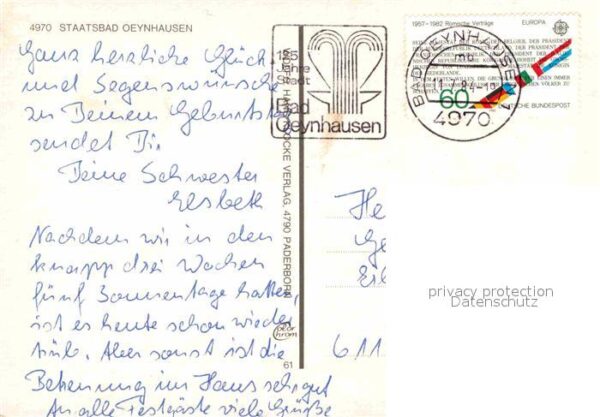 4970 STAATSBAD OEYNHAUSEN
Ganz herzliche Glück
und Segenswünsche
zu Deinem Geburtstag
sendet Dir
Deine Schwester
Elsbeth
Nachdem wir in den
knapp drei Wochen
fünf Sonnentage hatten,
ist es heute schon wieder
trüb. Aber sonst ist die
Betreuung im Haus sehr gut
An alle Festgäste viele Grüße
125
Jahre
Stadt
Bad
Oeynhausen
VERLAG, 4790 PADERBORN
colorchrom
61
1957–1982 Römische Verträge EUROPA
60
DEUTSCHE BUNDESPOST
BAD OEYNHAUSEN 1
mb
4970
He
Ge
611
privacy protection
Datenschutz